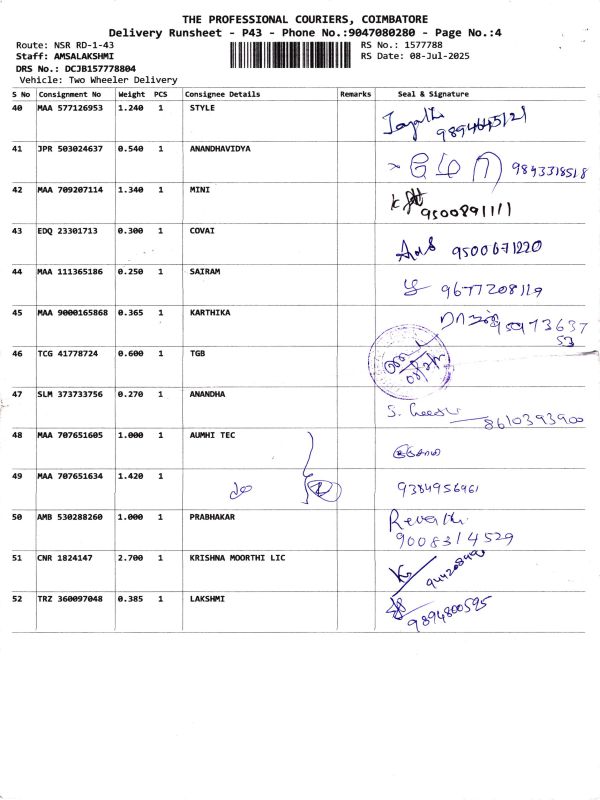 THE PROFESSIONAL COURIERS, COIMBATORE
Delivery Runsheet - P43 - Phone No.:9047080280 - Page No.:4
Route: NSR RD-1-43 RS No.: 1577788
Staff: AMSALAKSHMI RS Date: 08-Jul-2025
DRS No.: DCJB157778804
Vehicle: Two Wheeler Delivery
S No Consignment No Weight PCS Consignee Details Remarks Seal & Signature
40 MAA 577126953 1.240 1 STYLE
41 JPR 503024637 0.540 1 ANANDHAVIDYA 9843318518
42 MAA 709207114 1.340 1 MINI 9500891111
43 EDQ 23301713 0.300 1 COVAI 9500671220
44 MAA 111365186 0.250 1 SAIRAM 9677208119
45 MAA 9000165868 0.365 1 KARTHIKA
46 TCG 41778724 0.600 1 TGB
47 SLM 373733756 0.270 1 ANANDHA 8610393900
48 MAA 707651605 1.000 1 AUMHI TEC
49 MAA 707651634 1.420 1 9384956961
50 AMB 530288260 1.000 1 PRABHAKAR Revathi
9008314529
51 CNR 1824147 2.700 1 KRISHNA MOORTHI LIC
52 TRZ 360097048 0.385 1 LAKSHMI 9894800595